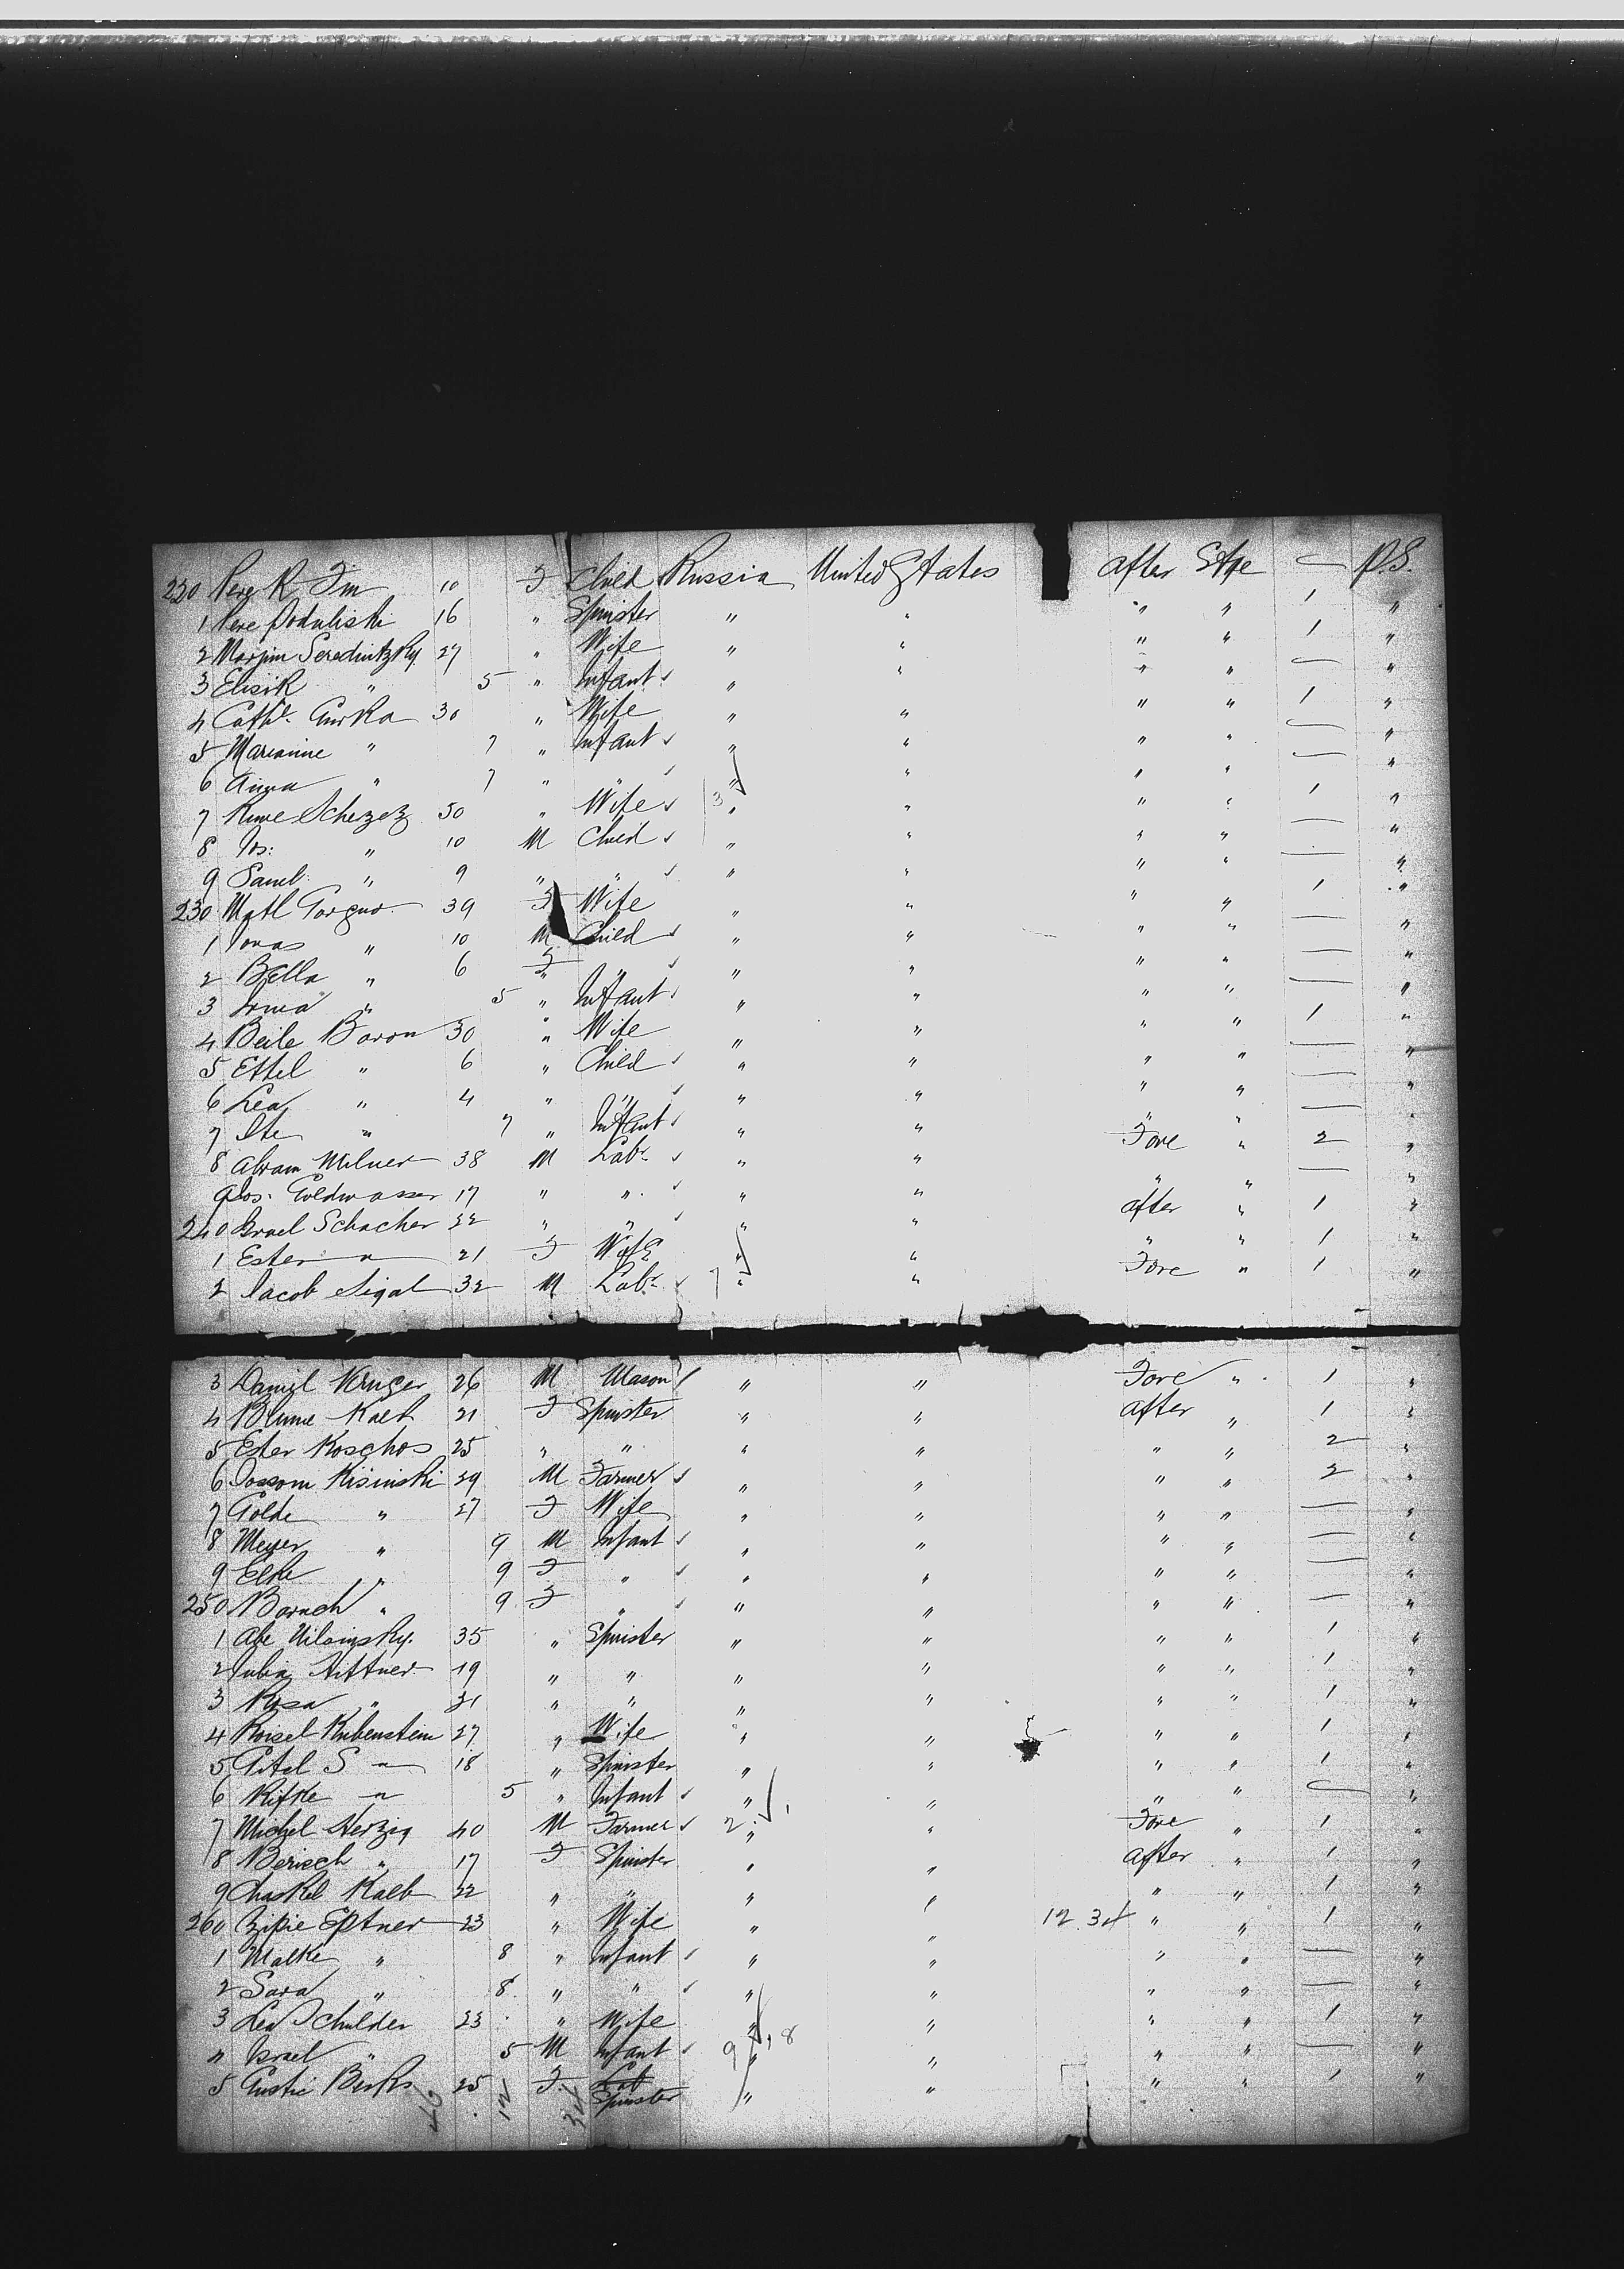 220 Pere R. Im 10 F Child Russia United States after Stge — P.S.
1 Pere Poduliski 16 " Spinster " " " " 1 "
2 Marjim Seredintzky 27 " Wife " " " " 1 "
3 Elisik " 5 " Infant " " " " — "
4 Cath. Gurka 30 " Wife " " " " 1 "
5 Marianne " 7 " Infant " " " " — "
6 Anna " 7 " " " " " " —
7 Schezez 50 " Wife 3 " " " " 1 "
8 Jos: " 10 M Child " " " " — "
9 Saml: " 9 " " " " " " — "
230 Matl 39 F Wife " " " " 1 "
1 Jonas " 10 M Child " " " " — "
2 Bella " 6 F " " " " " — "
3 " 5 " Infant " " " " — "
4 Beile Baron 30 " Wife " " " " 1 "
5 Ettel " 6 " Child " " " " — "
6 Lea " 4 " " " " " " — "
7 Ite " 7 " Infant " " " " — "
8 Abram Milner 38 M Labr " " Fore " 2 "
9 Jos: Goldwasser 17 " " " " " " — "
240 Israel Schacher 22 " " " " after " 1 "
1 Ester " 21 F Wife " " " " 1 "
2 Jacob Sigal 32 M Labr 7 " " Fore " 1 "
3 Daniel Kruger 26 M Mason " " Fore " 1 "
4 Blume Kalb 21 F Spinster " " after " 1 "
5 Ester Koschos 25 " " " " " " 2 "
6 Kisinski 29 M Farmer " " " " 2 "
7 Golde " 27 F Wife " " " " — "
8 Meyer " 9 M Infant " " " " — "
9 Elke " 9 F " " " " " — "
250 Baruch " 9 F " " " " " — "
1 Abe 35 " Spinster " " " " 1 "
2 Hittner 19 " " " " " " 1 "
3 Rosa " 31 " " " " " " 1 "
4 Roisel Rubenstein 27 " Wife " " " " 1 "
5 Gitel S " 18 " Spinster " " " " 1 "
6 Rifke " 5 " Infant " " " " — "
7 Michel Herzig 40 M Farmer 2 " " Fore " 1 "
8 Berisch " 17 F Spinster " " after " 1 "
9 Chaskel Kalb 22 " " " " " " 1 "
260 Zipie Eptner 23 " Wife " " 12 34 " " 1 "
1 Malke " 8 " Infant " " " " — "
2 Sara " 8 " " " " " " — "
3 Lea Schulder 23 " Wife " " " " 1 "
4 Israel " 5 M Infant 9 " 8 " " " — "
5 Gustie 25 F Lab " " " " 1 "
Spinster
46 12 34